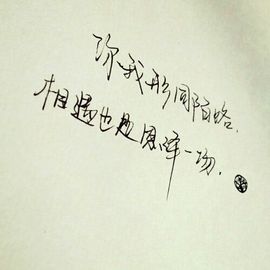 你我形同陌路.
相遇也是恩泽一场.